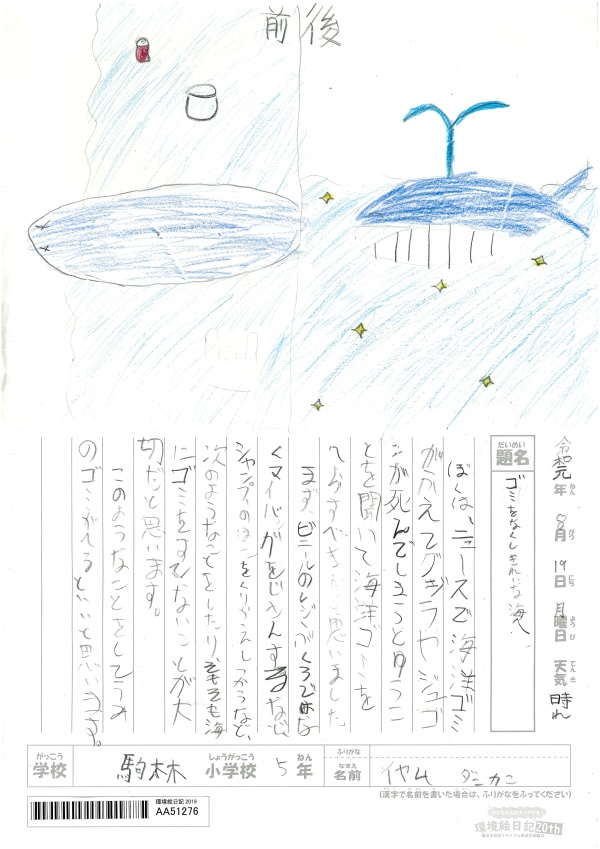 前 後
令和元年 8月 19日 月曜日 天気 晴れ
だいめい
題名
ゴミをなくしきれいな海へ
ぼくは、ニュースで海洋ゴミ
がふえてクジラやジュゴ
ンが死んでしまうとゆうこ
とを聞いて海洋ゴミを
へらすべきだと思いました
まず、ビニールのレジぶくろではな
くマイバッグをじさんするなど、
シャンプーの
をくりかえしつかうなど、
次のようなことをしたりそもそも海
にゴミをすてないことが大
切だと思います。
このようなことをしてうみ
のゴミがへるといいと思います。
がっこう
学校
駒林 小学校 5年
しょうがっこう ねん
ふりがな
なまえ
名前
イヤム ダニカニ
(漢字で名前を書いた場合は、ふりがなをふってください)
環境絵日記2019
AA51276
環境絵日記20th